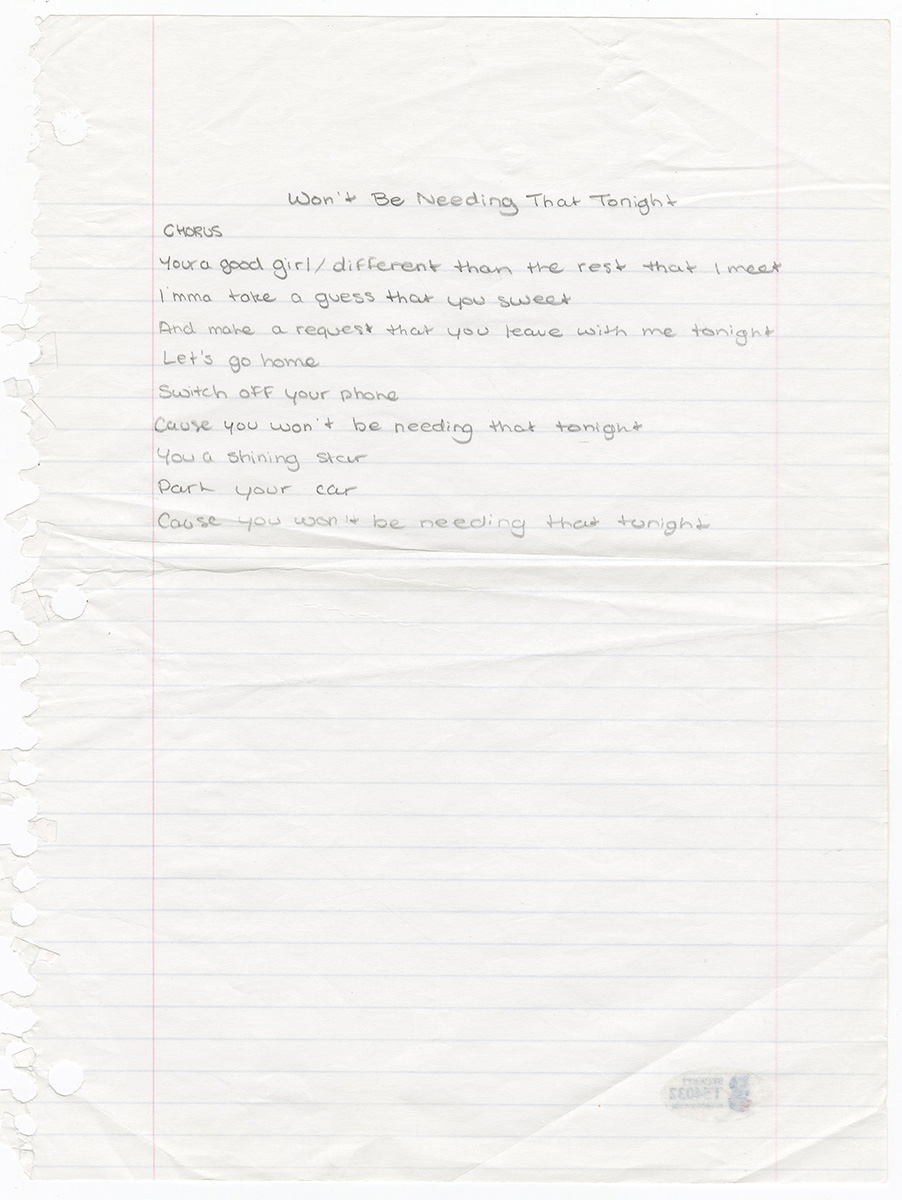 Won't Be Needing That Tonight
CHORUS
Your a good girl/different than the rest that I meet
I'mma take a guess that you sweet
And make a request that you leave with me tonight
Let's go home
Switch off your phone
Cause you won't be needing that tonight
You a shining star
Park your car
Cause you won't be needing that tonight
BECKETT
T54032